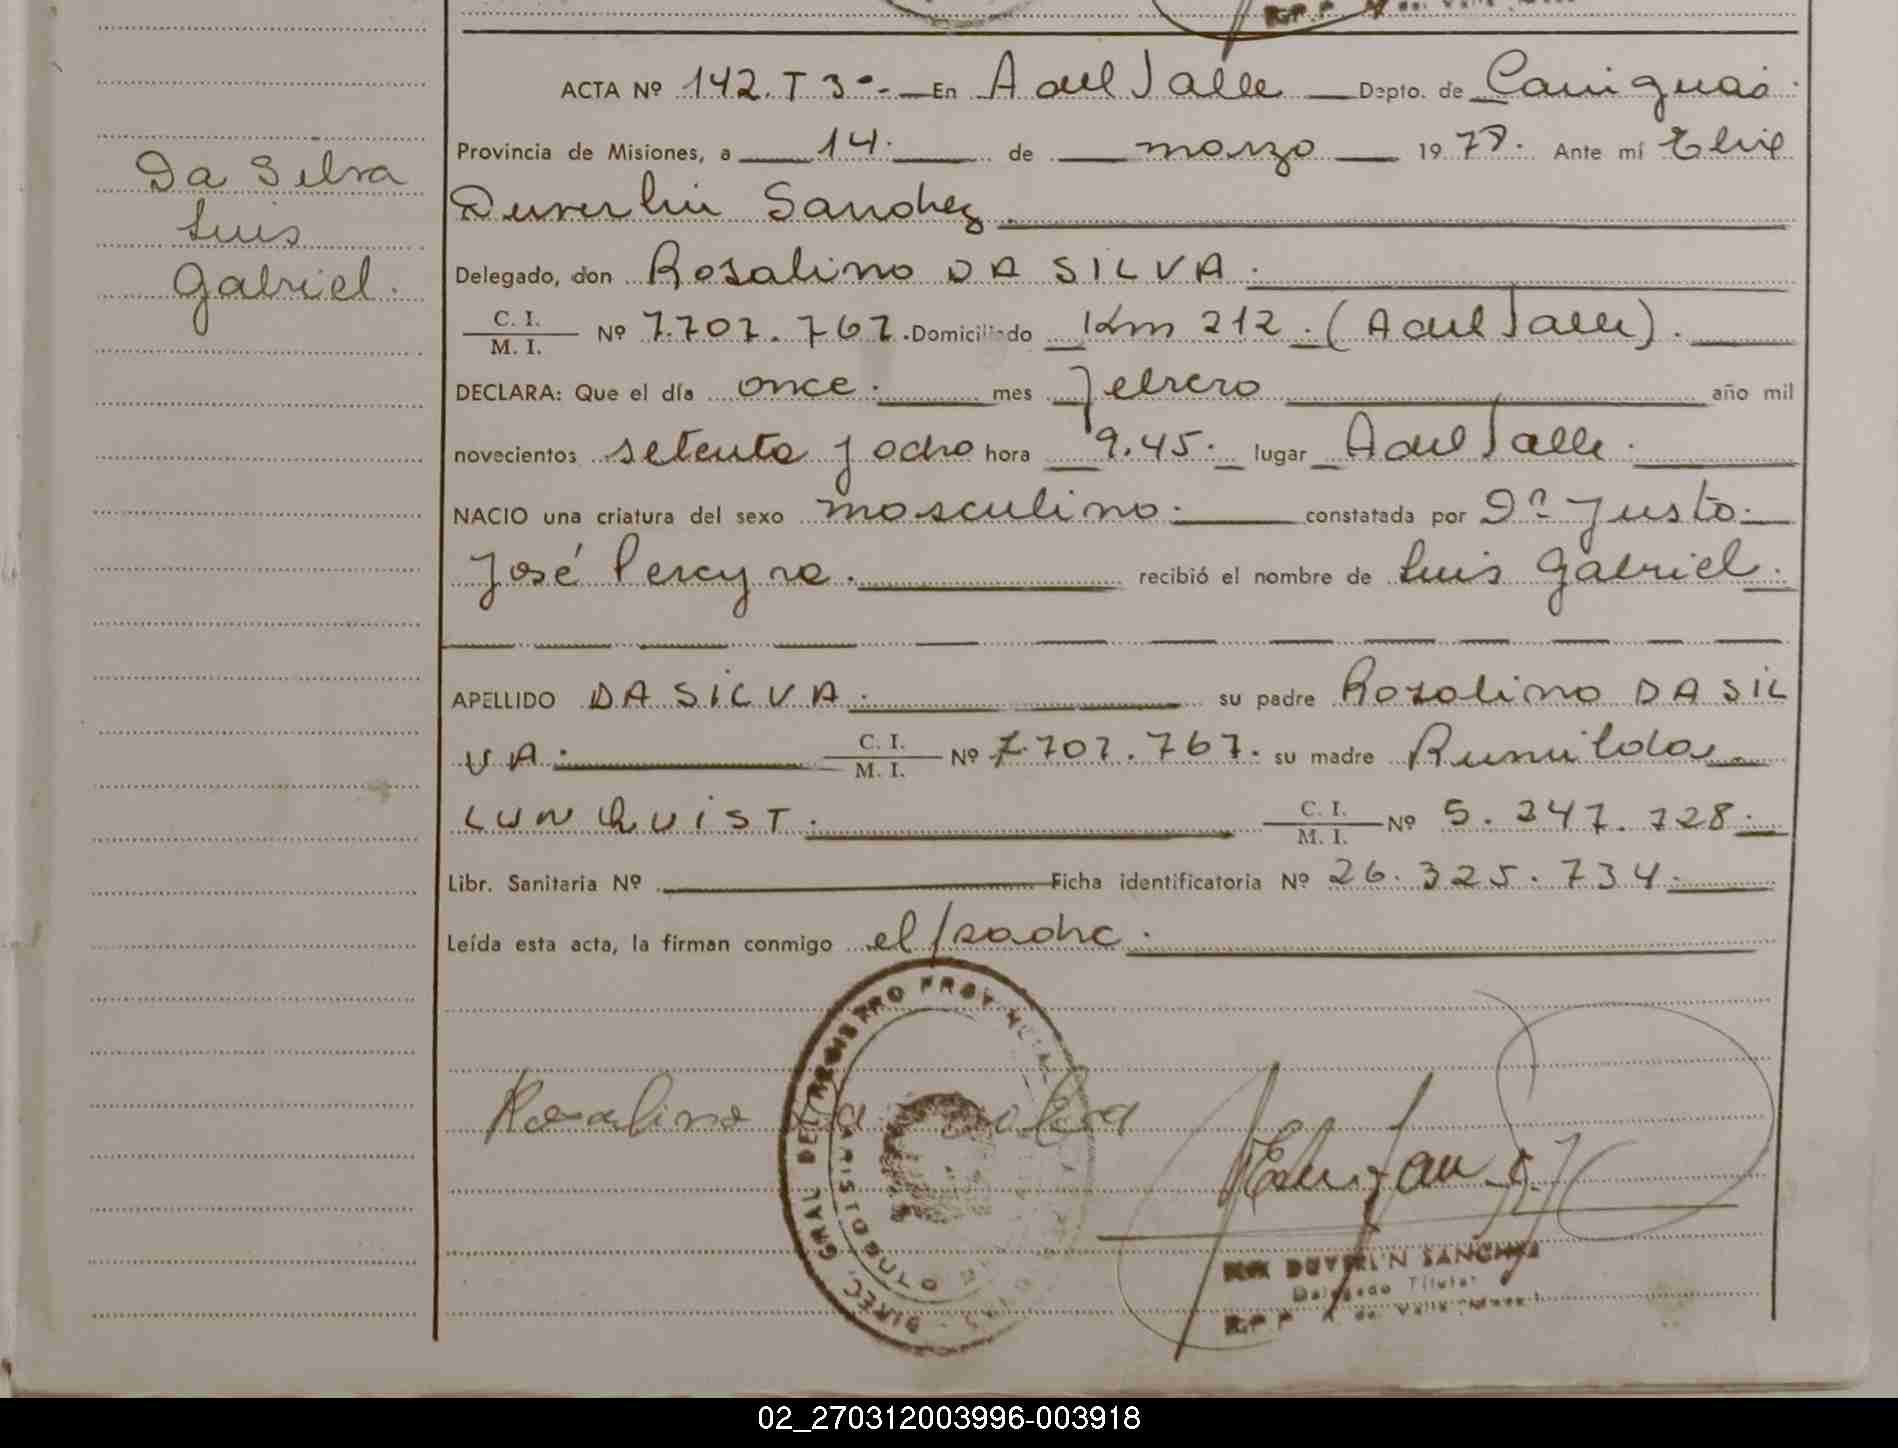 ACTA Nº 142. T 3º.- En A del Valle Depto. de Cainguas.
Provincia de Misiones, a 14. de marzo 1978. Ante mí Elix
Duverlin Sanchez.
Delegado, don Rosalino DA SILVA.
C. I.
M. I.
Nº 7.707.767. Domiciliado Km 212. (A del Valle).
DECLARA: Que el día once. mes febrero año mil
novecientos setenta y ocho hora 9.45. lugar A del Valle.
NACIO una criatura del sexo masculino. constatada por Dn Justo
José Pereyra. recibió el nombre de Luis Gabriel.
APELLIDO DA SILVA. su padre Rosalino DA SIL
VA. C. I.
M. I.
Nº 7.707.767. su madre Rumilda
LUNQUIST. C. I.
M. I.
Nº 5.347.728.
Libr. Sanitaria Nº Ficha identificatoria Nº 26.325.734.
Leída esta acta, la firman conmigo el padre.
Da Silva
Luis
Gabriel.
Rosalino Da Silva
DIREC. GRAL. DEL REGISTRO PROV.
DUVERLIN SANCHEZ
Delegado Titular
02_270312003996-003918